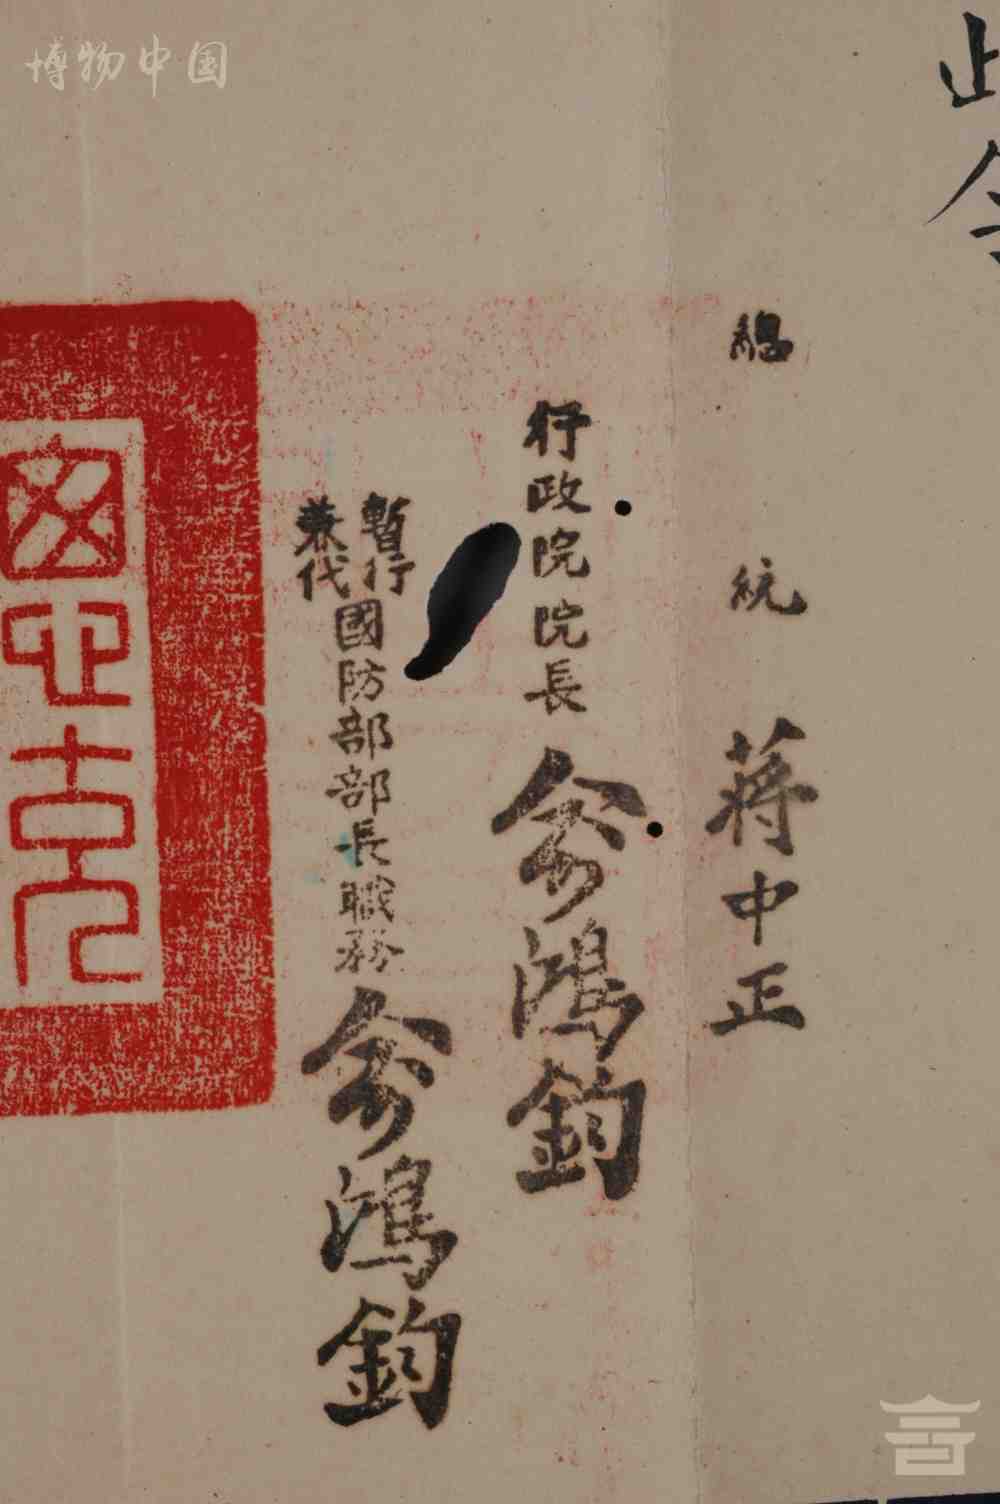 博物中国
此令
總統 蔣中正
行政院院長 俞鴻鈞
暫行兼代國防部部長職務 俞鴻鈞